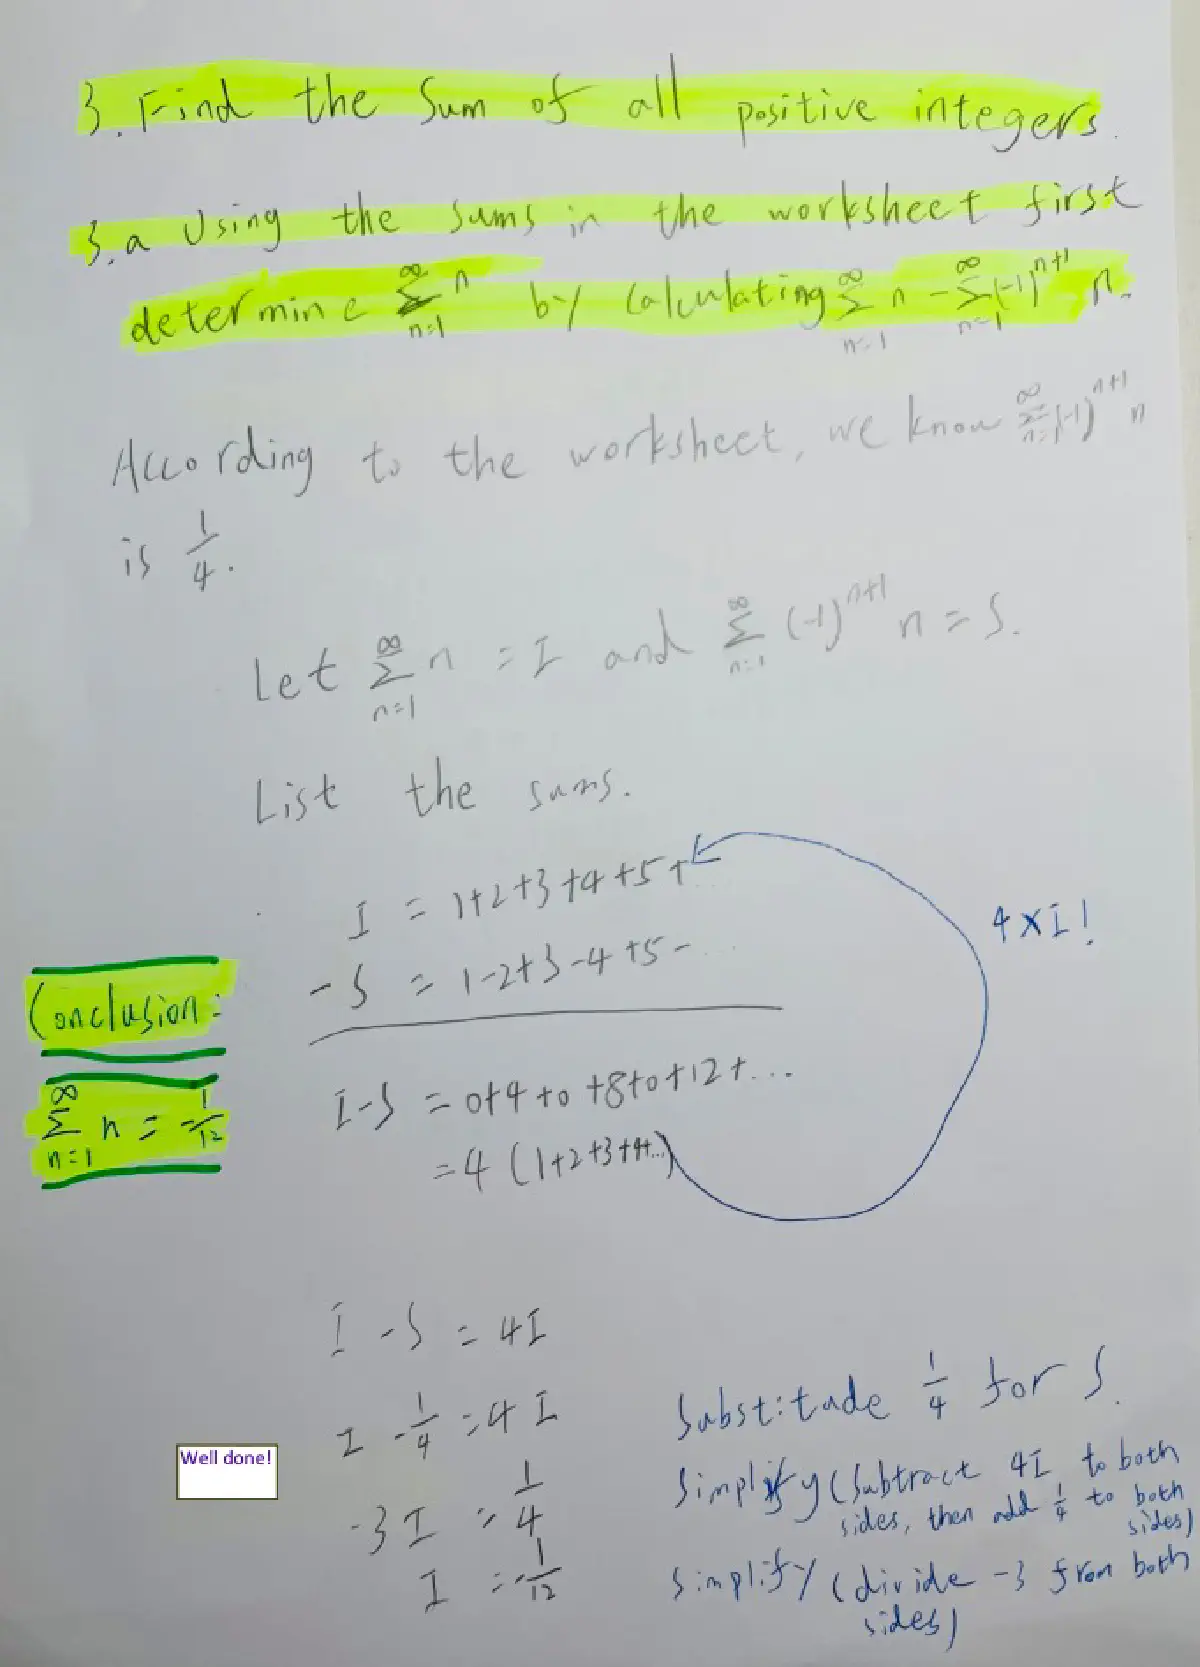 3. Find the Sum of all positive integers.
3.a Using the sums in the worksheet first
determine ∑_{n=1}^{∞} n by calculating ∑_{n=1}^{∞} n - ∑_{n=1}^{∞} (-1)^{n+1} n.
According to the worksheet, we know ∑_{n=1}^{∞} (-1)^{n+1} n
is 1/4.
Let ∑_{n=1}^{∞} n = I and ∑_{n=1}^{∞} (-1)^{n+1} n = S.
List the sums.
I = 1+2+3+4+5+...
-S = 1-2+3-4+5-...
I-S = 0+4+0+8+0+12+...
=4(1+2+3+4+...)
4×I!
Conclusion:
∑_{n=1}^{∞} n = -1/12
I-S = 4I
I - 1/4 = 4I Substitude 1/4 for S.
-3I = 1/4 Simplify (Subtract 4I to both
sides, then add 1/4 to both
sides)
I = -1/12 Simplify (divide -3 from both
sides)
Well done!